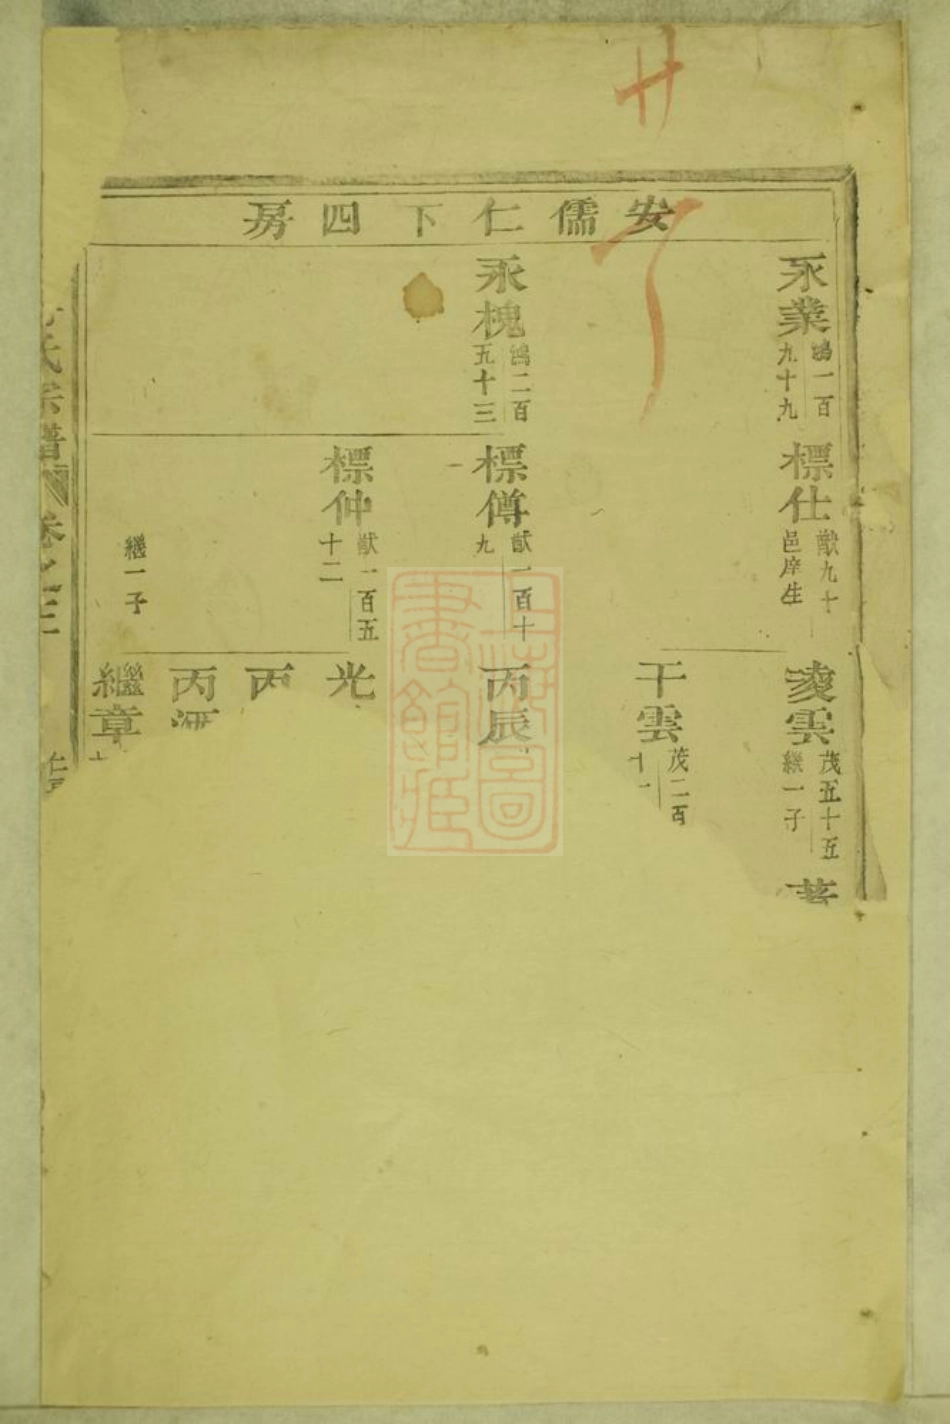 安儒仁下四房
永業 鴻一百九十九
標仕 猷九十 邑庠生
凌雲 茂五十五 繼一子
干雲 茂二百十一
永槐 鴻二百五十三
標傅 猷一百十九
丙辰
標仲 猷一百五十二
光
丙
丙
繼一子
繼章
氏宗譜 卷之三
上海圖書館藏